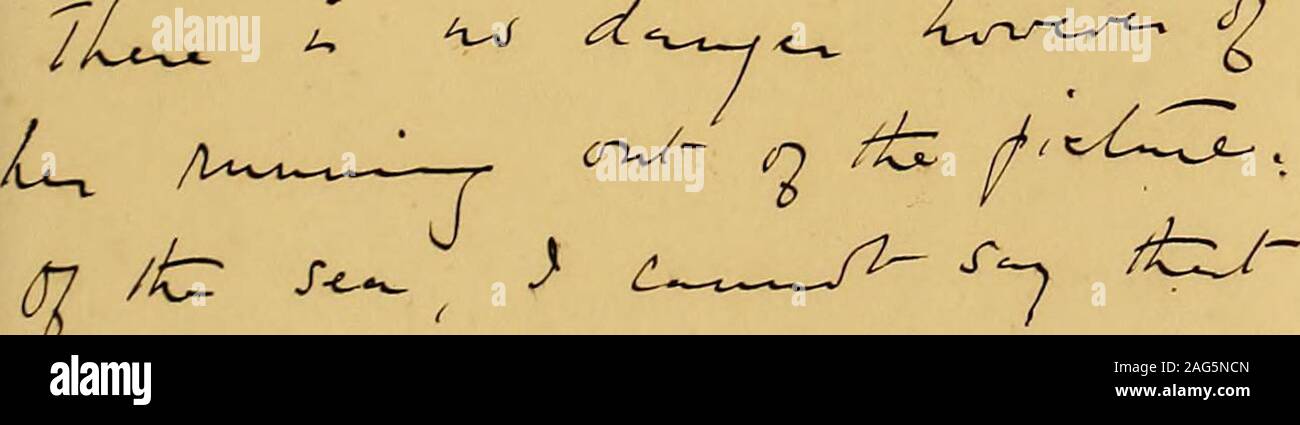 There is no danger however of
her running out of the picture:
of the sea, I cannot say that
alamy
Image ID: 2AG5NCN
www.alamy.com